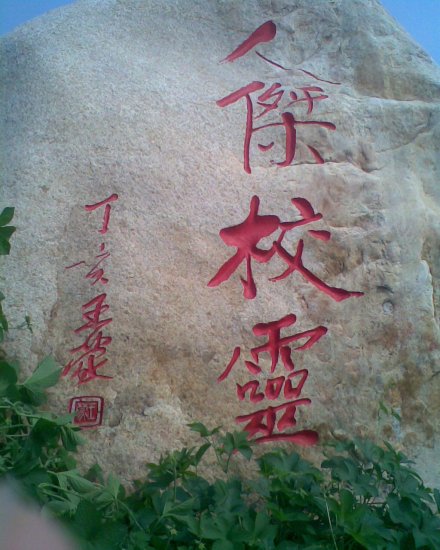 人傑校靈
丁亥王蒙